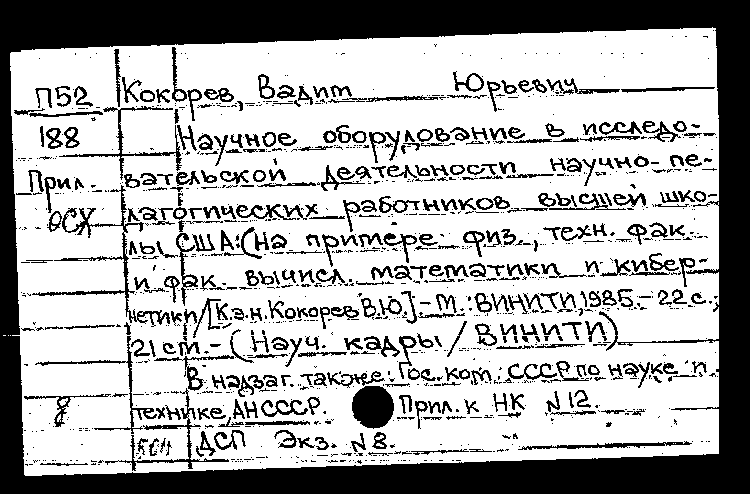 П52 Кокорев, Вадим Юрьевич
188 Научное оборудование в исследо-
Прил. вательской деятельности научно-пе-
ОСХ дагогических работников высшей шко-
лы США: (на примере физ., техн. фак.
и фак. вычисл. математики и кибер-
нетики / [К.э.н. Кокорев В.Ю.]. - М.: ВИНИТИ, 1985. - 22 с.;
21 см. - (Науч. кадры / ВИНИТИ)
В надзаг. также: Гос. ком. СССР по науке и
технике, АН СССР. Прил. к НК N 12.
ДСП Экз. N 8.